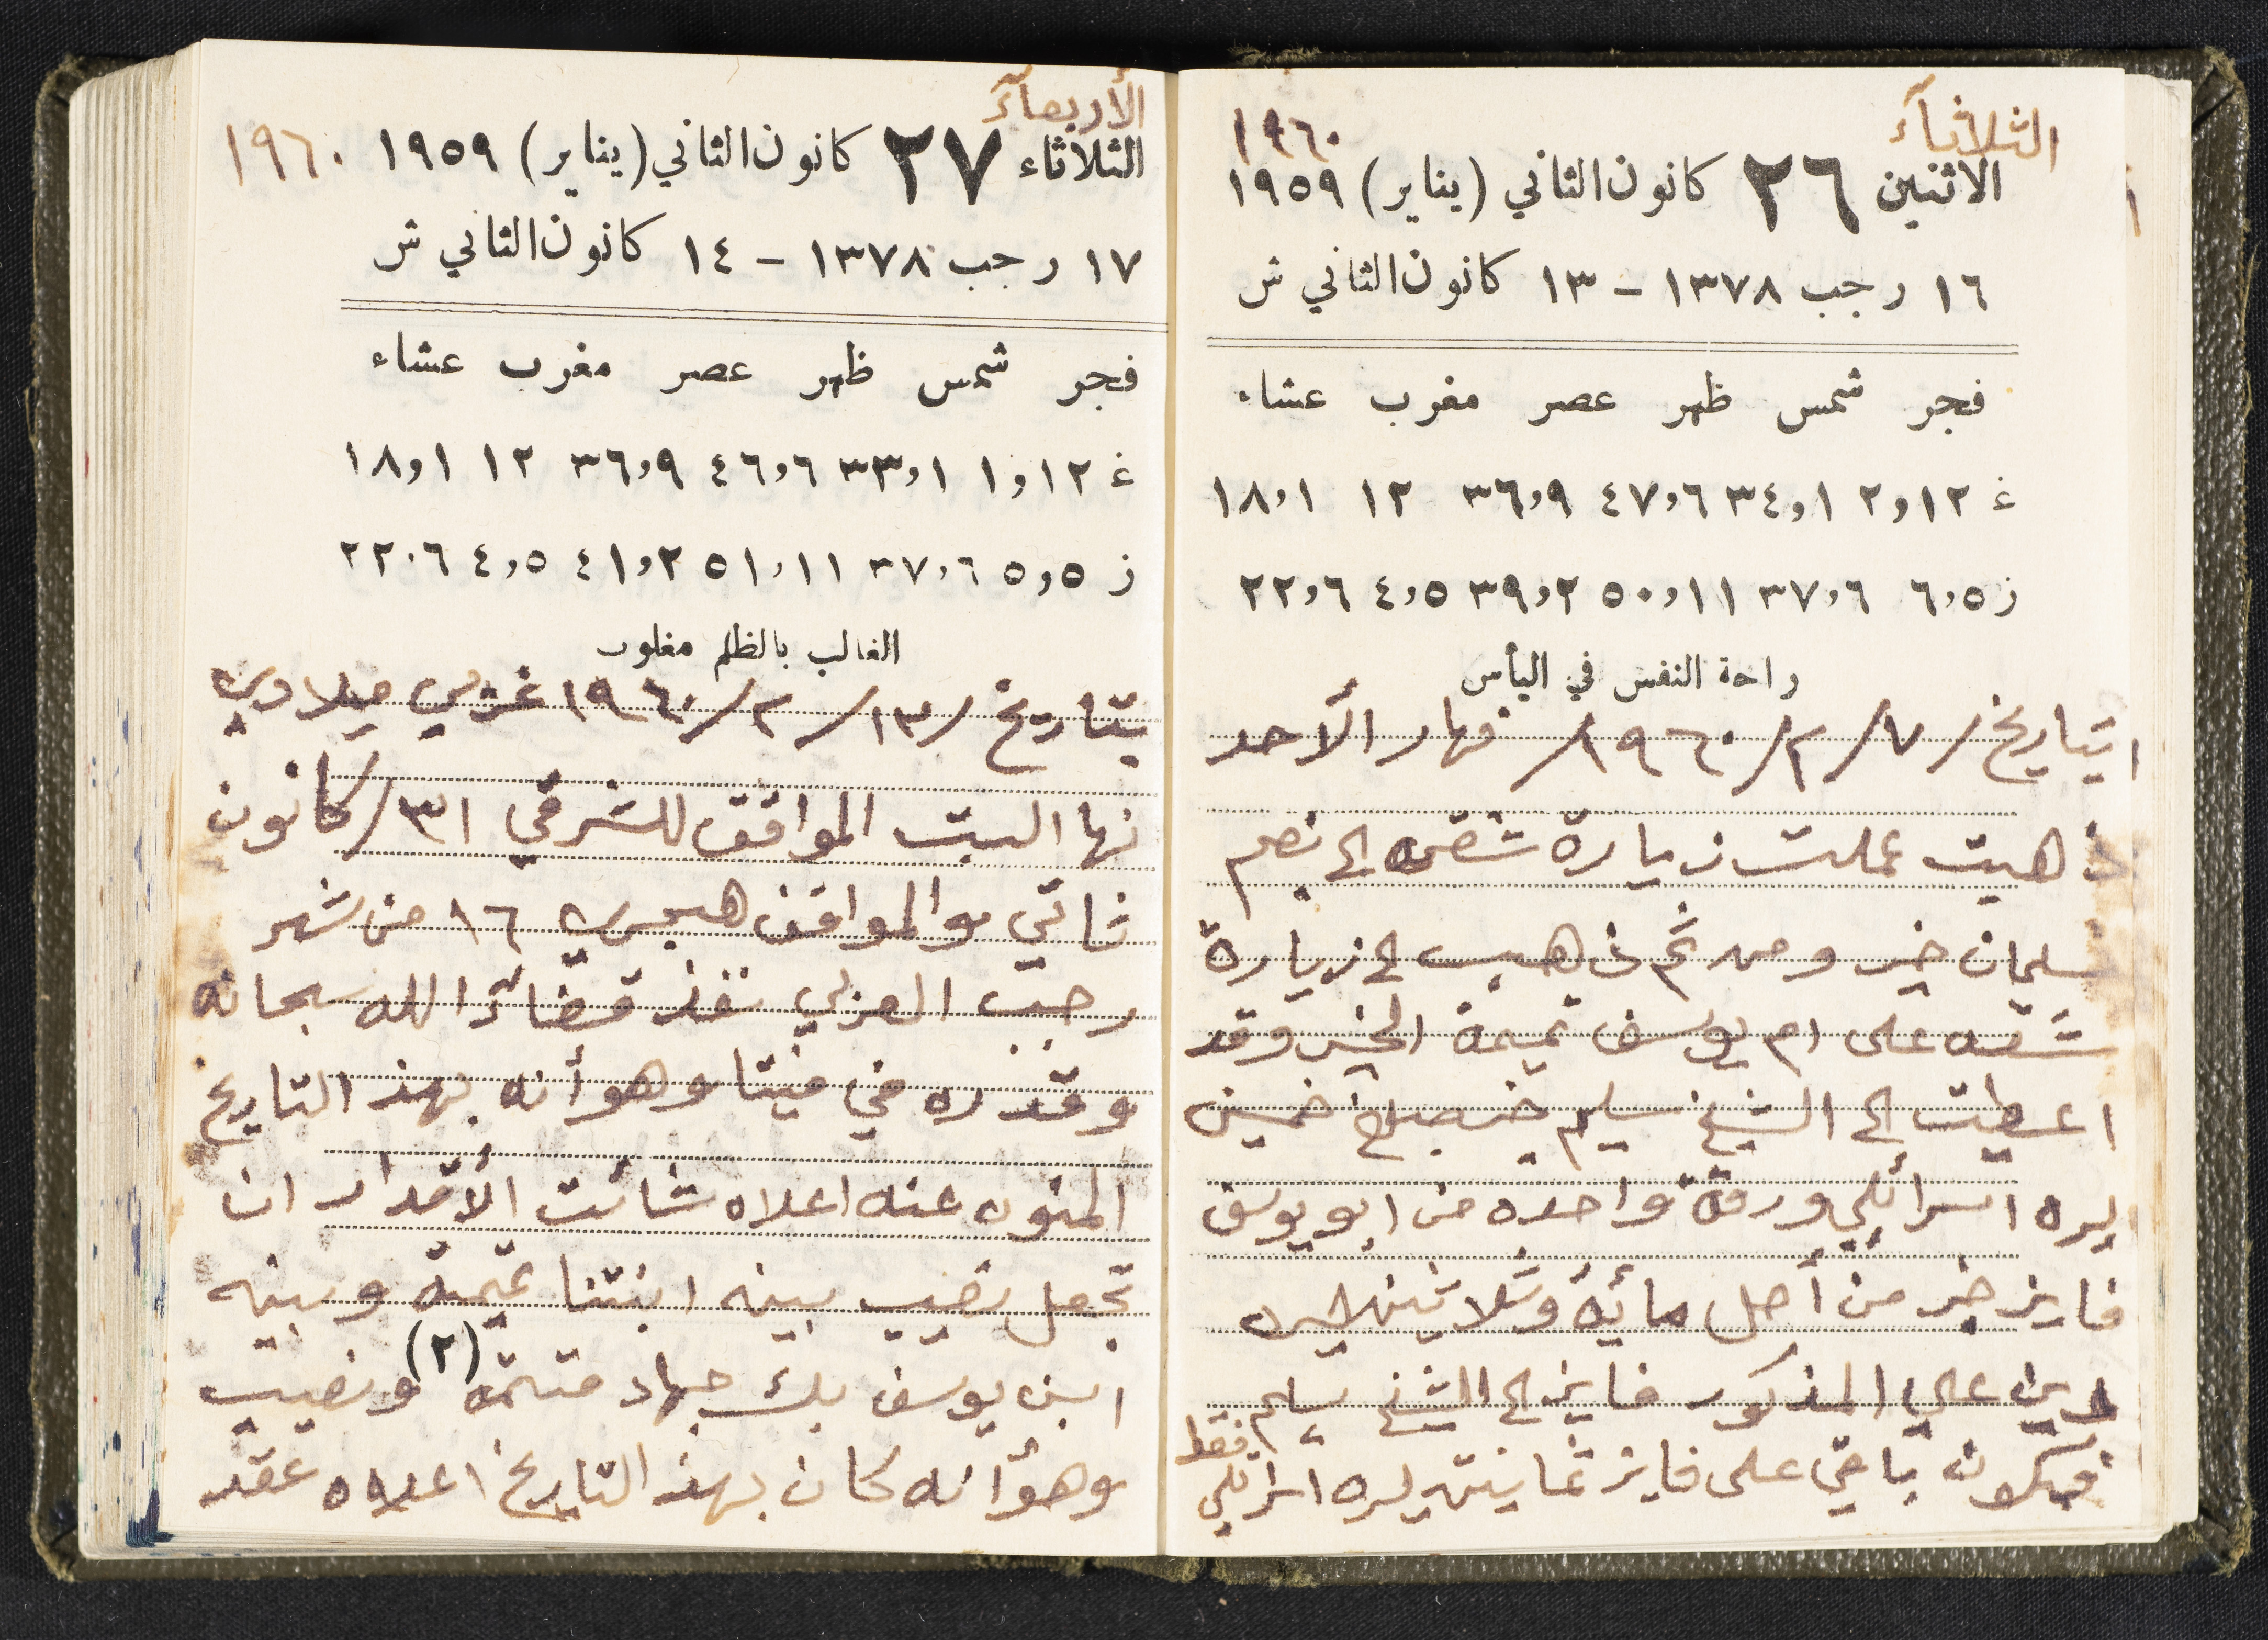 الثلاثآء
١٩٦٠
الاثنين ٢٦ كانون الثاني (يناير) ١٩٥٩
١٦ رجب ١٣٧٨ - ١٣ كانون الثاني ش
فجر شمس ظهر عصر مغرب عشاء
غ ١٢و٢ ١و٣٤ ٦و٤٧ ٩و٣٦ ١٢ ١و١٨
ز ٥و٦ ٦و٣٧ ١١و٥٠ ٢و٣٩ ٥و٤ ٦و٢٢
راحة النفس في اليأس
بتاريخ /٧/٢/١٩٦٠/ نهار الأحد
ذهبت عملت زيارة شقه الى نعيم
سليمان خير ومن ثم ذهبت الى زيارة
شقه على ام يوسف تميمة الخير وقد
اعطيت الى الشيخ سليم خير مبلغ خمسين
ليره اسرائيلي ورقة واحده من ابو يوسف
فايز خير من أصل مائة وثلاثين ليره
دين علي المذكور فايز الى الشيخ سليم فقط
فيكون باقي على فايز ثمانين ليره اسرائيلي
الأربعآء
الثلاثاء ٢٧ كانون الثاني (يناير) ١٩٥٩ ١٩٦٠
١٧ رجب ١٣٧٨ - ١٤ كانون الثاني ش
فجر شمس ظهر عصر مغرب عشاء
غ ١٢و١ ١و٣٣ ٦و٤٦ ٩و٣٦ ١٢ ١و١٨
ز ٥و٥ ٦و٣٧ ١١و٥١ ٢و٤١ ٥و٤ ٦و٢٢
الغالب بالظلم مغلوب
بتاريخ /١٣/٢/١٩٦٠ غربي ميلادي
نها السبت الموافق للشرقي ٣١/كانون
ثاني والموافق هجري ١٦ من شهر
رجب العربي نفذ قضائ الله سبحانه
وقدره في فيتا وهو أنه بهذ التاريخ
المنوه عنه اعلاه شائت الأقدار ان
تجعل نصيب بينه ابنتنا تميمة وبينه
ابن يوسف بك جهاد قسمة (٢) ونصيب
وهو أنه كان بهذ التاريخ اعلاه عقد